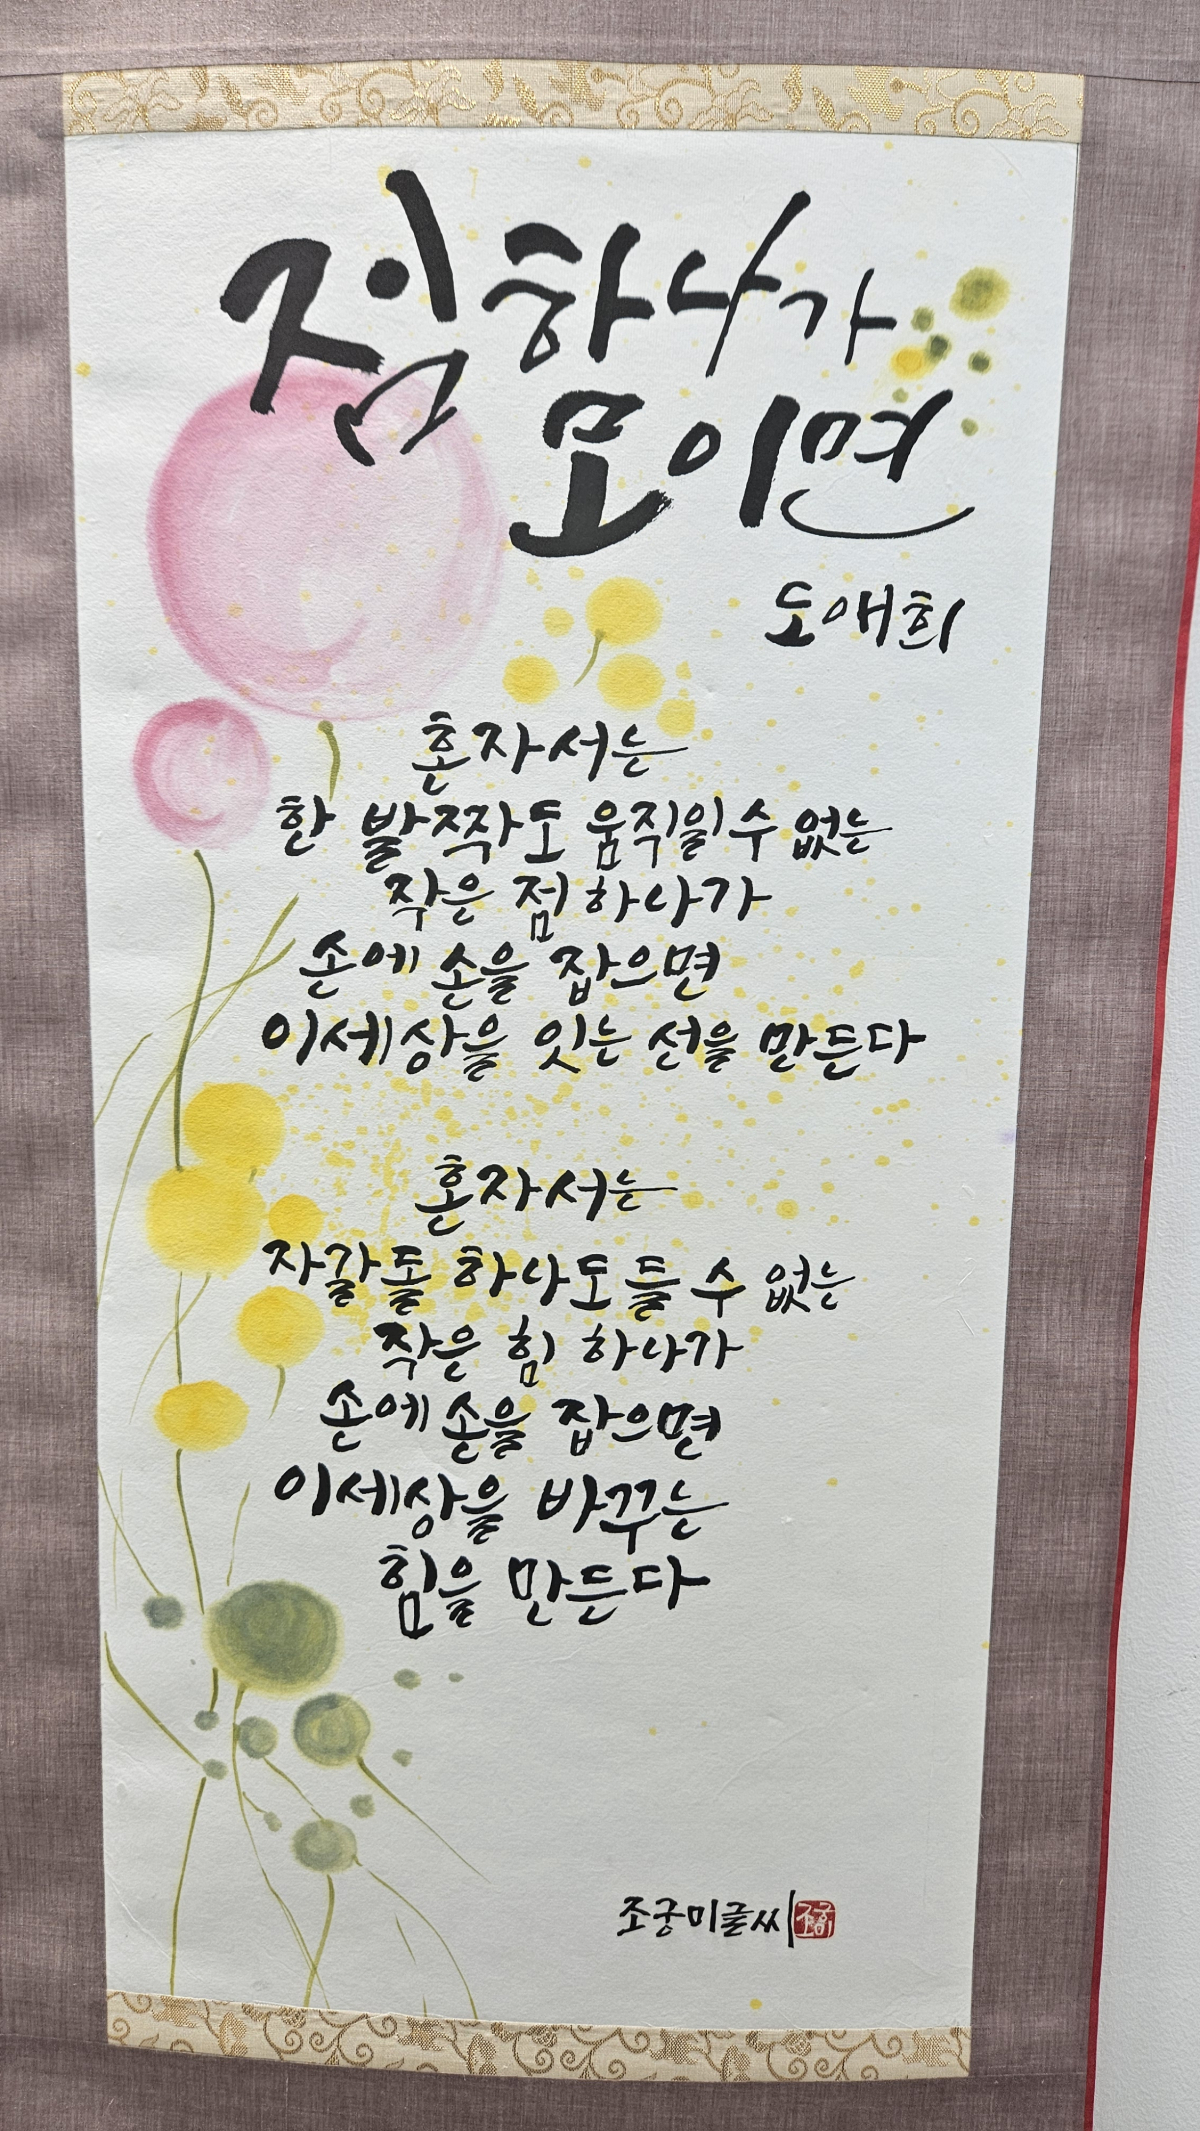 점하나가
모이면
도애희
혼자서는
한 발짝도 움직일 수 없는
작은 점 하나가
손에 손을 잡으면
이세상을 잇는 선을 만든다
혼자서는
자갈돌 하나도 들 수 없는
작은 힘 하나가
손에 손을 잡으면
이세상을 바꾸는
힘을 만든다
조궁미글씨